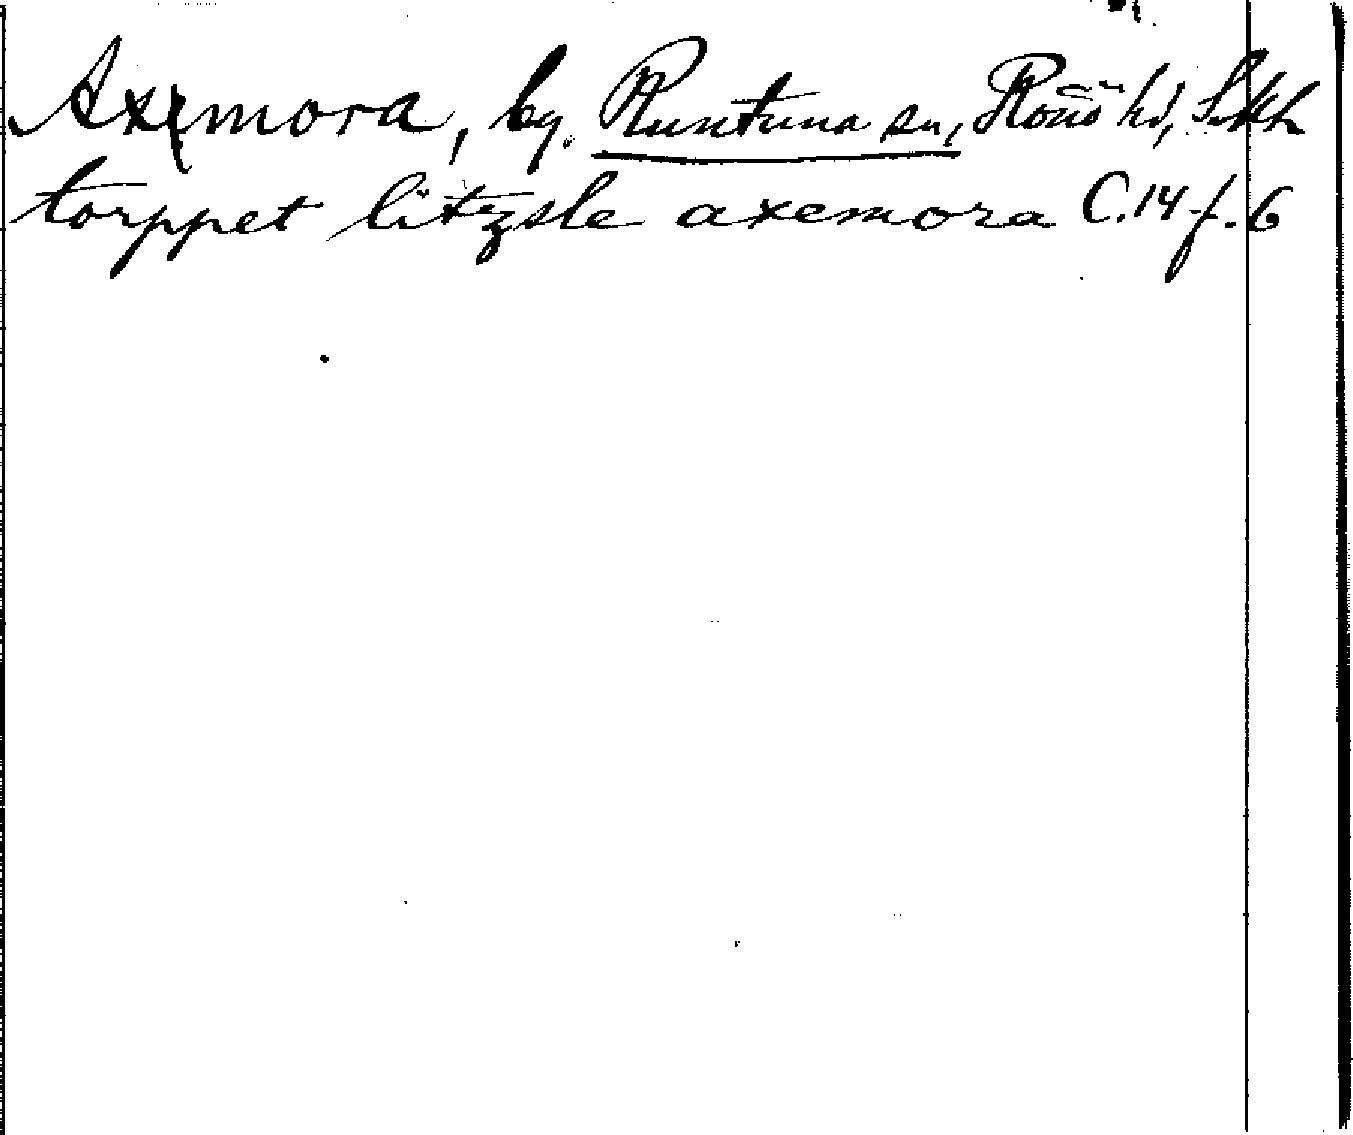 Axemora, by. Runtuna sn, Rönö hd, S.khl
torppet litzsle axemora C.14 f. 6